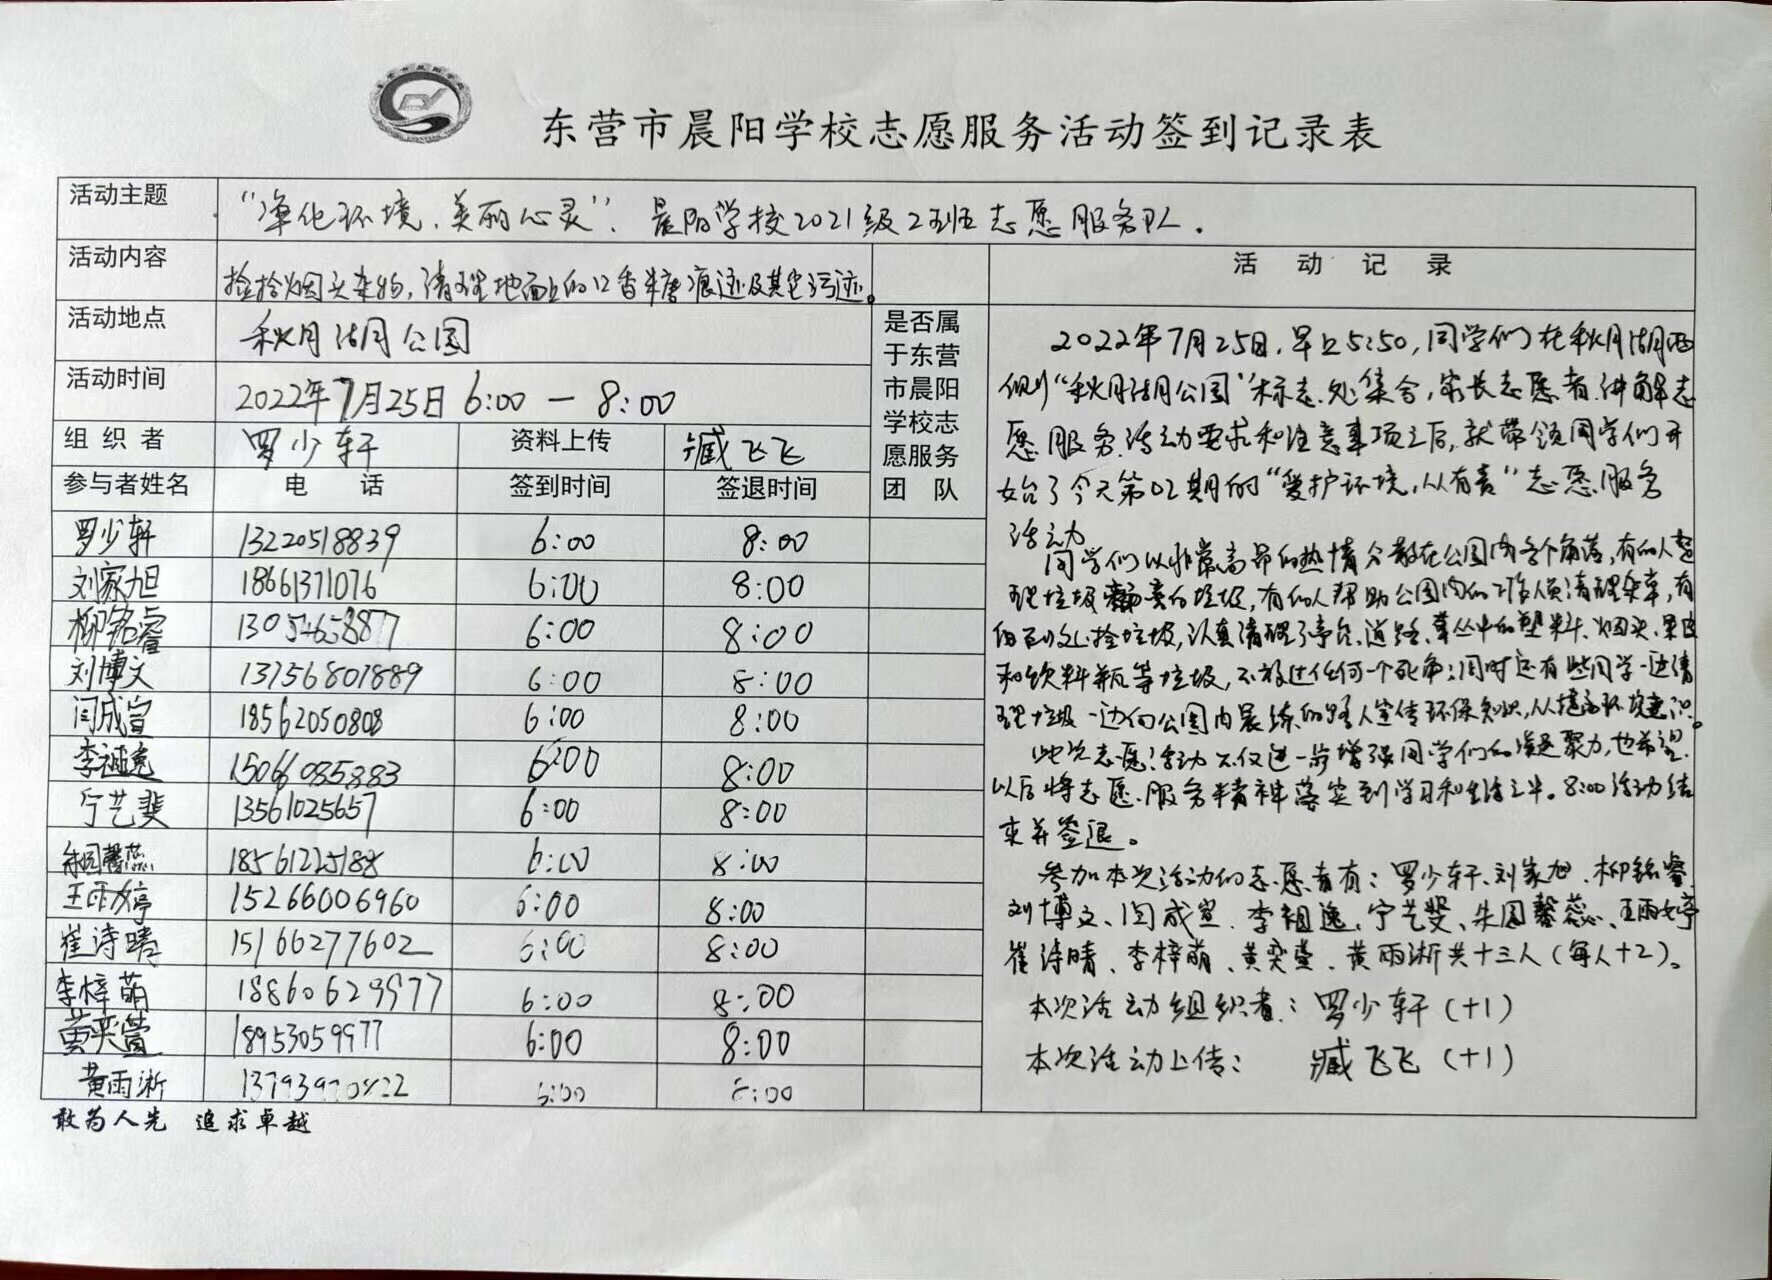 东营市晨阳学校志愿服务活动签到记录表
活动主题 “净化环境、美丽心灵”. 晨阳学校2021级2班志愿服务队.
活动内容 捡拾烟头杂物,清理地面上的口香糖痕迹及其它污迹。
活动地点 秋月湖公园
活动时间 2022年7月25日 6:00 — 8:00
组织者 罗少轩 资料上传 臧飞飞
参与者姓名 电话 签到时间 签退时间
是否属
于东营
市晨阳
学校志
愿服务
团队
罗少轩 13220518839 6:00 8:00
刘家旭 18661371076 6:00 8:00
柳铭睿 13054658877 6:00 8:00
刘博文 13756801889 6:00 8:00
闫成宣 18562050808 6:00 8:00
李 15066085883 6:00 8:00
宁艺斐 13561025657 6:00 8:00
朱圆馨蕊 6:00 8:00
王雨婷 15266006960 6:00 8:00
崔诗晴 15166277602 6:00 8:00
李梓萌 18860629977 6:00 8:00
黄奕萱 18953059977 6:00 8:00
黄雨淅 6:00 8:00
活动记录
2022年7月25日,早上5:50,同学们在秋月湖西
侧“秋月湖公园”标志处集合,家长志愿者讲解志
愿服务活动要求和注意事项之后,就带领同学们开
始了今天第02期的“爱护环境,从有责”志愿服务
活动
同学们以非常高昂的热情分散在公园内各个角落,有的人整
理垃圾 垃圾,有的人帮助公园内的工作人员清理杂草,有
的到处捡垃圾,认真清理了亭台、道路、草丛中的塑料、烟头、果皮
和饮料瓶等垃圾,不放过任何一个死角;同时还有些同学一边清
理垃圾一边向公园内晨练的路人宣传环保知识,从提高环境意识。
此次志愿活动不仅进一步增强同学们的凝聚力,也希望
以后将志愿服务精神落实到学习和生活之中。8:00活动结
束并签退。
参加本次活动的志愿者有:罗少轩、刘家旭、柳铭睿、
刘博文、闫成宣、李祖逸、宁艺斐、朱圆馨蕊、王雨婷
崔诗晴、李梓萌、黄奕萱、黄雨淅共十三人(每人+2)。
本次活动组织者:罗少轩(+1)
本次活动上传: 臧飞飞(+1)
敢为人先 追求卓越